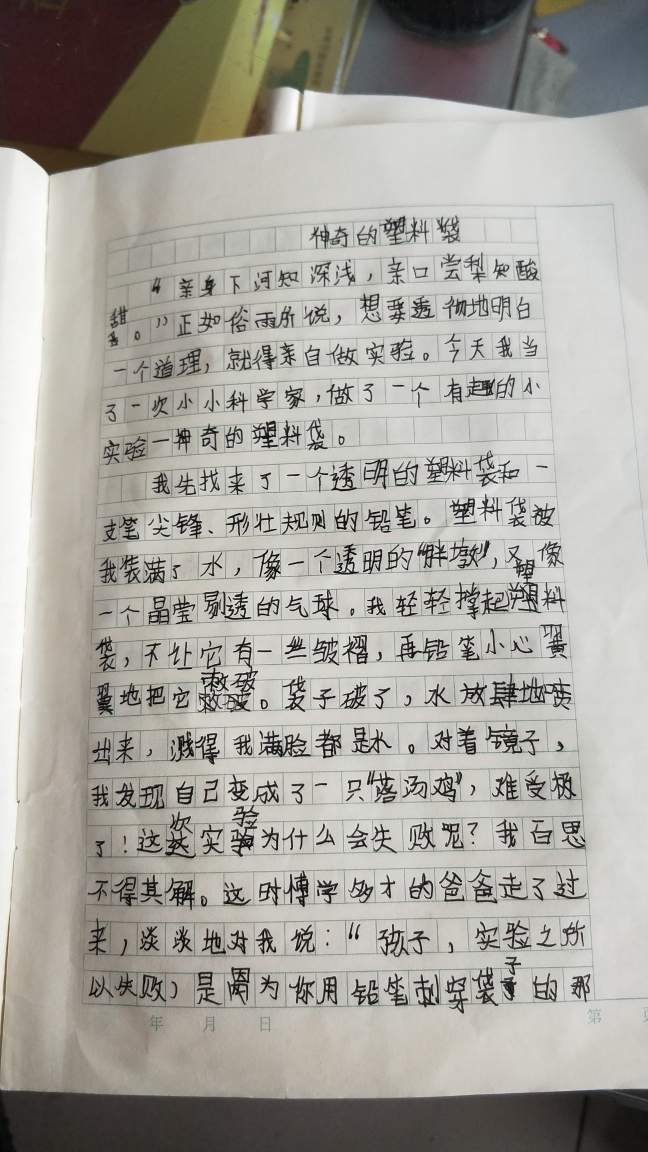 神奇的塑料袋
“亲身下河知深浅，亲口尝梨知酸
甜。”正如俗雨所说，想要透彻地明白
一个道理，就得亲自做实验。今天我当
了一次小小科学家，做了一个有趣的小
实验一神奇的塑料袋。
我先找来了一个透明的塑料袋和一
支笔尖锋、形壮规则的铅笔。塑料袋被
我装满了水，像一个透明的“胖墩”，又像
一个晶莹剔透的气球。我轻轻撑起塑料
袋，不让它有一丝皱褶，再铅笔小心翼
翼地把它破。袋子破了，水放肆地喷
出来，溅得我满脸都是水。对着镜子，
我发现自己变成了一只“落汤鸡”，难受极
了！这次实验为什么会失败呢？我百思
不得其解。这时博学多才的爸爸走了过
来，淡淡地对我说：“孩子，实验之所
以失败，是因为你用铅笔刺穿袋子的那
年 月 日 第 页